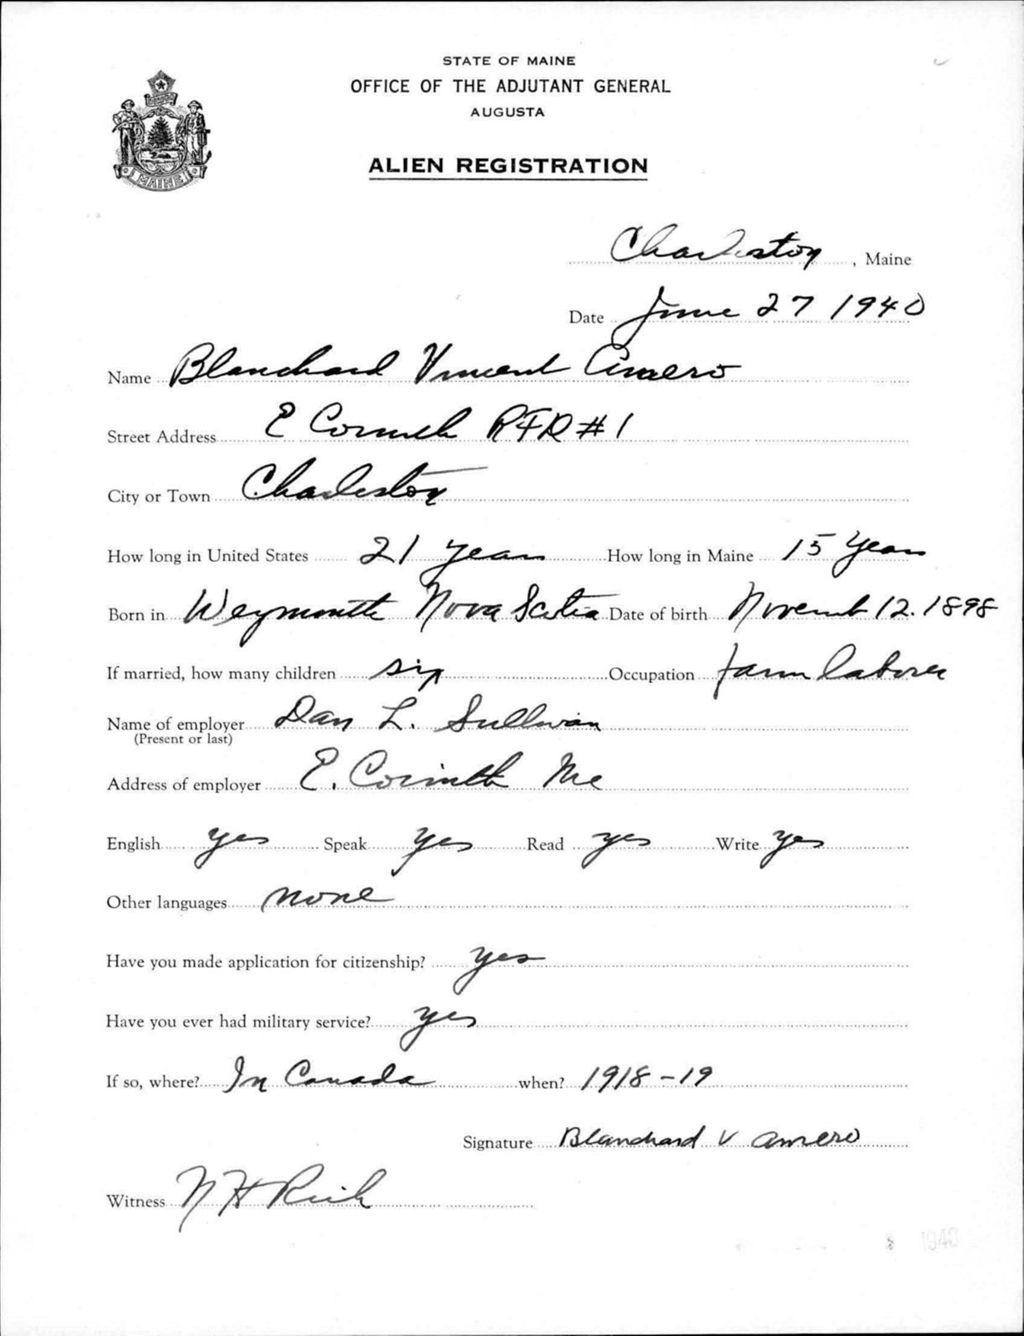 STATE OF MAINE
OFFICE OF THE ADJUTANT GENERAL
AUGUSTA
MAINE
ALIEN REGISTRATION
Charleston, Maine
Date June 27 1940
Name Blanchard Vincent Amero
Street Address E Corinth RFD #1
City or Town Charleston
How long in United States 21 years How long in Maine 15 years
Born in Weymouth Nova Scotia Date of birth Novemb 12. 1898
If married, how many children six Occupation farm laborer
Name of employer Dan L. Sullivan
(Present or last)
Address of employer E. Corinth Me
English yes Speak yes Read yes Write yes
Other languages none
Have you made application for citizenship? yes
Have you ever had military service? yes
If so, where? In Canada when? 1918-19
Signature Blanchard V Amero
Witness N H Rich
1940